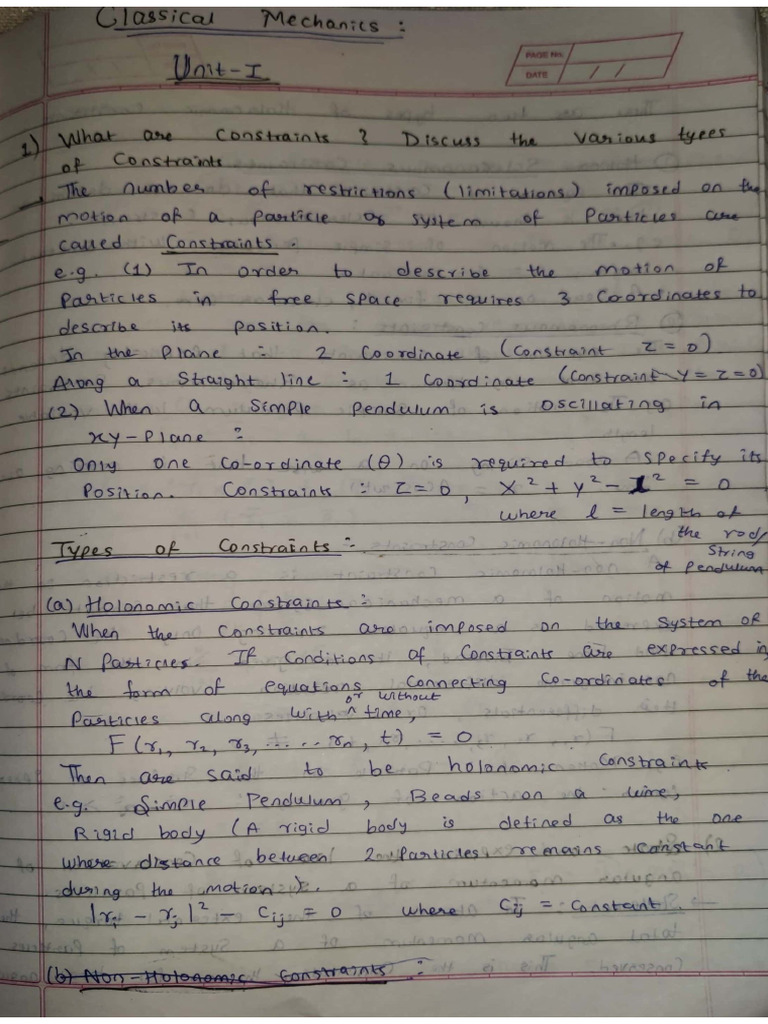 Classical Mechanics :
Unit-I
PAGE No.
DATE / /
1) What are Constraints ? Discuss the various tyees
of Constraints
The number of restrictions (limitations) imposed on the
motion of a particle or system of Particles are
called Constraints.
e.g. (1) In order to describe the motion of
Particles in free space requires 3 Coordinates to
describe its position.
In the Plane : 2 Coordinate (Constraint Z=0)
Along a Straight line : 1 Coordinate (Constraint Y=Z=0)
(2) When a Simple Pendulum is oscillating in
xy-Plane :
Only one Co-ordinate (θ) is required to specify its
Position. Constraints : Z=0, x² + y² - l² = 0
where l = length of
the rod/
String
of Pendulum
Types of Constraints :-
(a) Holonomic Constraints :
When the Constraints are imposed on the System of
N Particles. If Conditions of Constraints are expressed in
the form of equations connecting Co-ordinates of the
Particles along with or without time,
F(r₁, r₂, r₃, ..... rn, t) = 0
Then are said to be holonomic Constraints
e.g. Simple Pendulum, Beads on a wire,
Rigid body (A rigid body is defined as the one
where distance between 2 Particles remains constant
during the motion).
|ri - rj|² - Cij = 0 where Cij = Constant.
(b) Non-Holonomic Constraints :